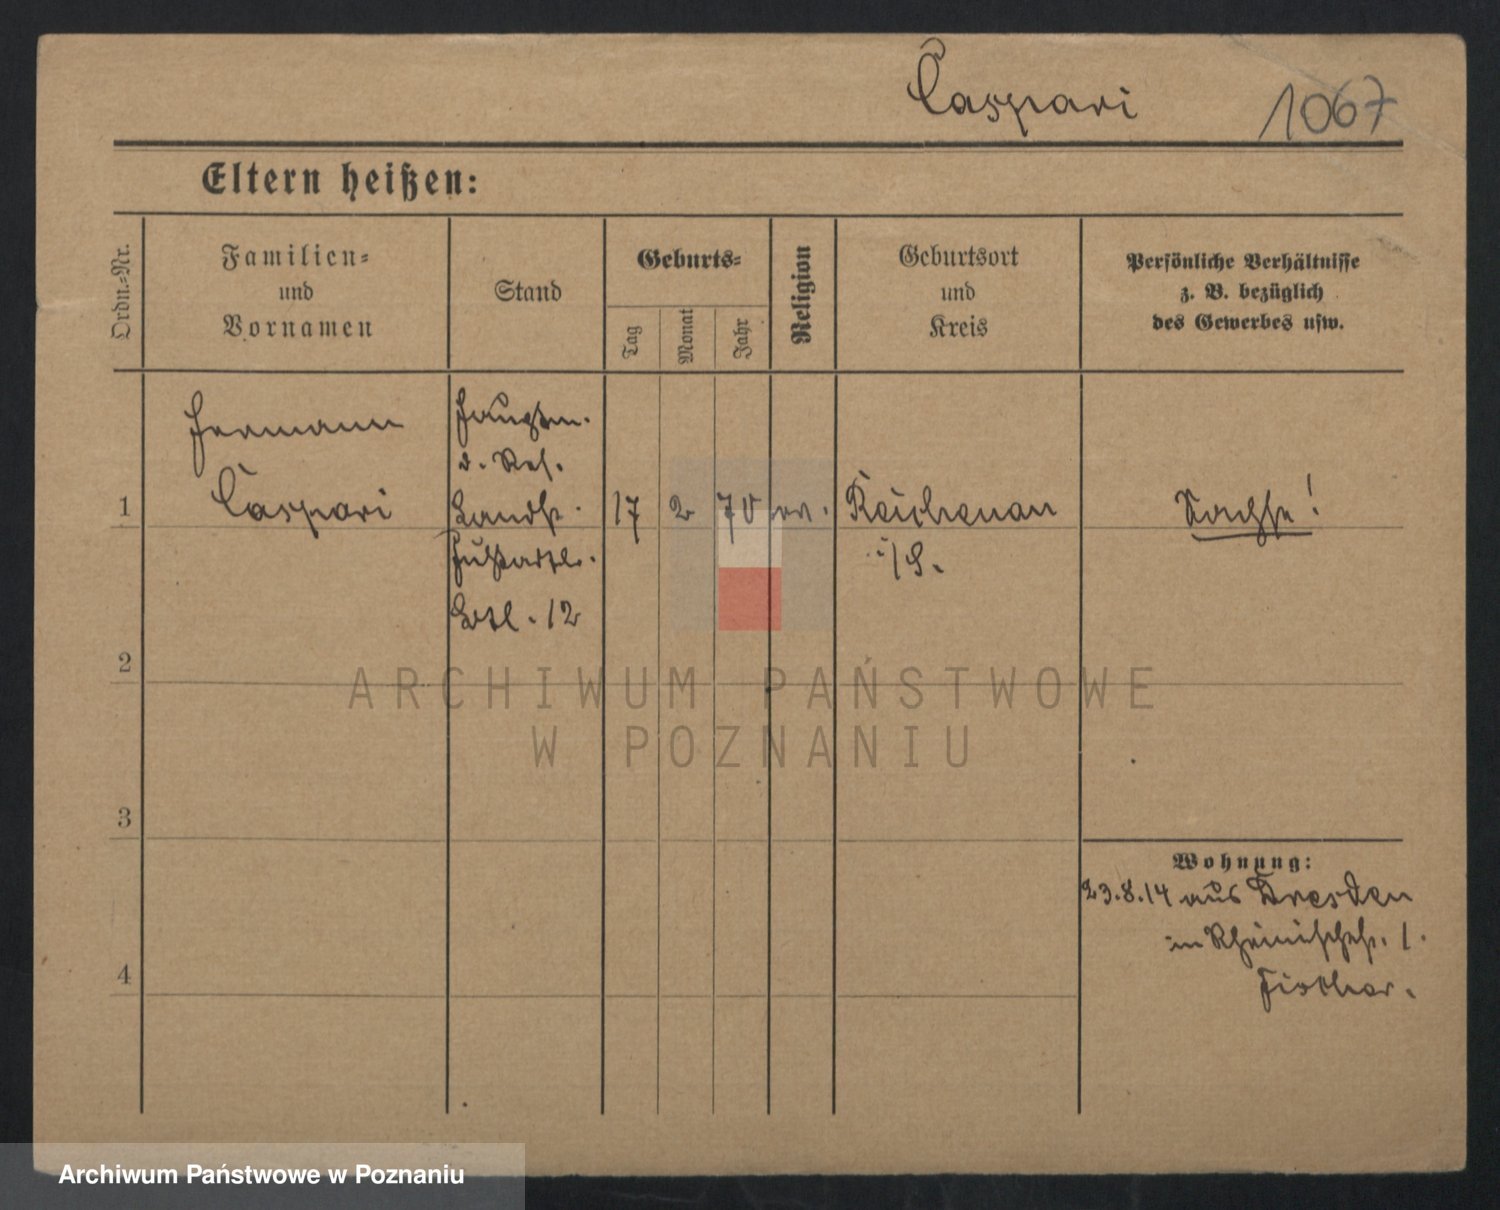 Caspari 1067
Eltern heißen:
Ordn.-Nr.
Familien-
und
Vornamen
Stand
Geburts-
Tag
Monat
Jahr
Religion
Geburtsort
und
Kreis
Persönliche Verhältnisse
z. B. bezüglich
des Gewerbes usw.
Hermann
Caspari
Hauptm.
d. Res.
Landst.
Fußartl.
Batl. 12
1
17 2 70 ev.
Reichenau
i/S.
Sachse!
2
3
4
Wohnung:
23.8.14 aus Dresden
in Rheinischestr. 1.
ARCHIWUM PAŃSTWOWE
W POZNANIU
Archiwum Państwowe w Poznaniu